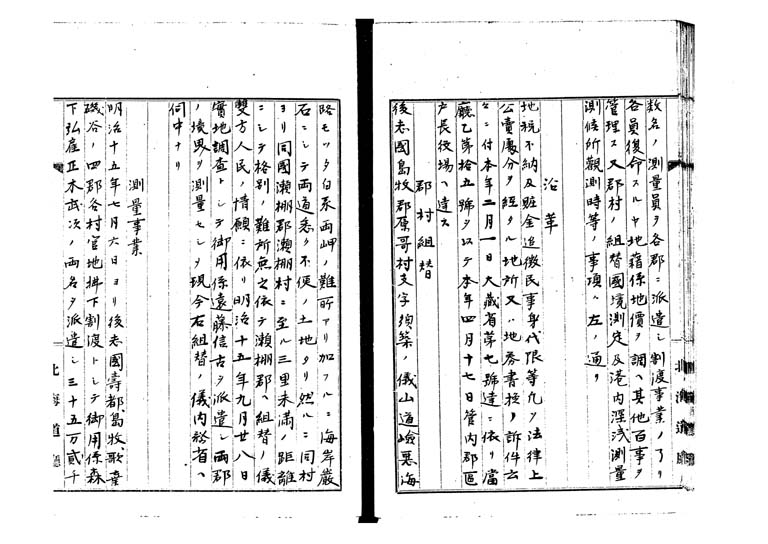 数名ノ測量員ヲ各郡ニ派遣シ割渡事業ノ了リ
各員復命スルヤ地籍係地價ヲ調ヘ其他百事ヲ
管理ス又郡村ノ組替國境測定及港内深浅測量
測候所觀測時等ノ事項ハ左ノ通リ
沿革
地税不納及賍金追徴民事身代限等九ヲ法律上
公賣處分ヲ経タル地所又ハ地券書換ノ訴件云
々ニ付本年二月一日大藏省第七號達ニ依リ當
廳乙第拾五號ヲ以テ本年四月十七日管内郡區
戸長役場ヘ達ス
郡村組替
後志國島牧郡原哥村支字須築ノ儀山道嶮惡海
路モツタ白糸両岬ノ難所アリ加フルニ海岸巖
石ニシテ両道悉ク不便ノ土地タリ然ルニ同村
ヨリ同國瀬棚郡瀬棚村ニ至ル三里未満ノ距離
ニシテ格別ノ難所無之依テ瀬棚郡ヘ組替ノ儀
雙方人民ノ情願ニ依リ明治十五年九月廿八日
實地調査トシテ御用係遠藤信古ヲ派遣シ両郡
ノ境界ヲ測量セシヲ現今右組替ノ儀内務省ヘ
伺中ナリ
測量事業
明治十五年七月六日ヨリ後志國壽都島牧歌棄
磯谷ノ四郡各村官地拂下割渡トシテ御用係森
下弘庭正木武次ノ両名ヲ派遣シ三十五万貳千
北海道廳